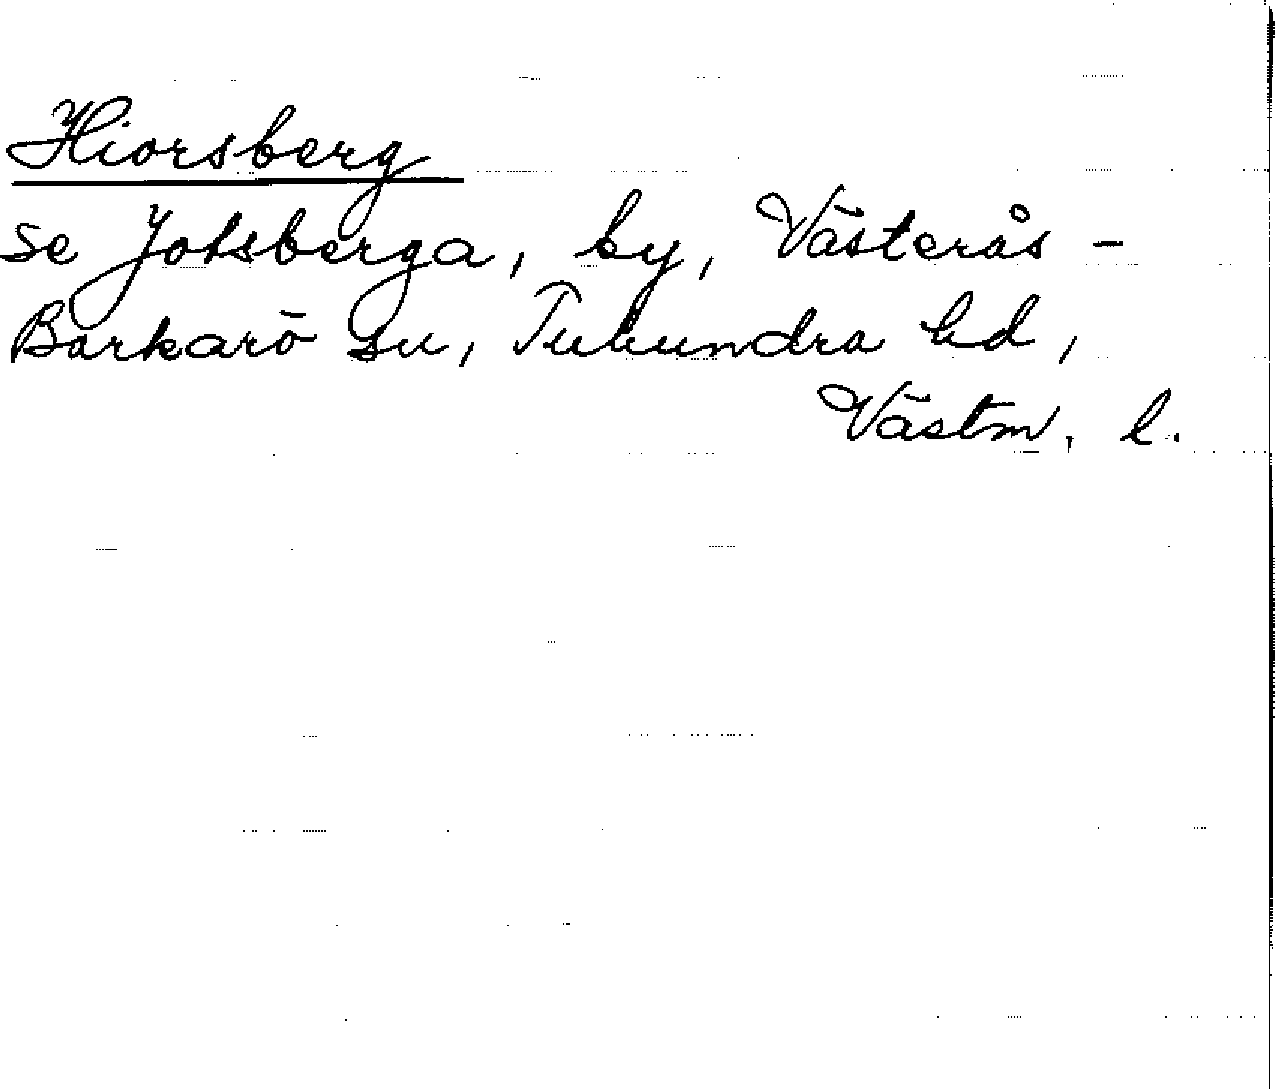 Hiorsberg
se Jotsberga, by, Västerås -
Barkarö sn, Tuhundra hd,
Västm. l.